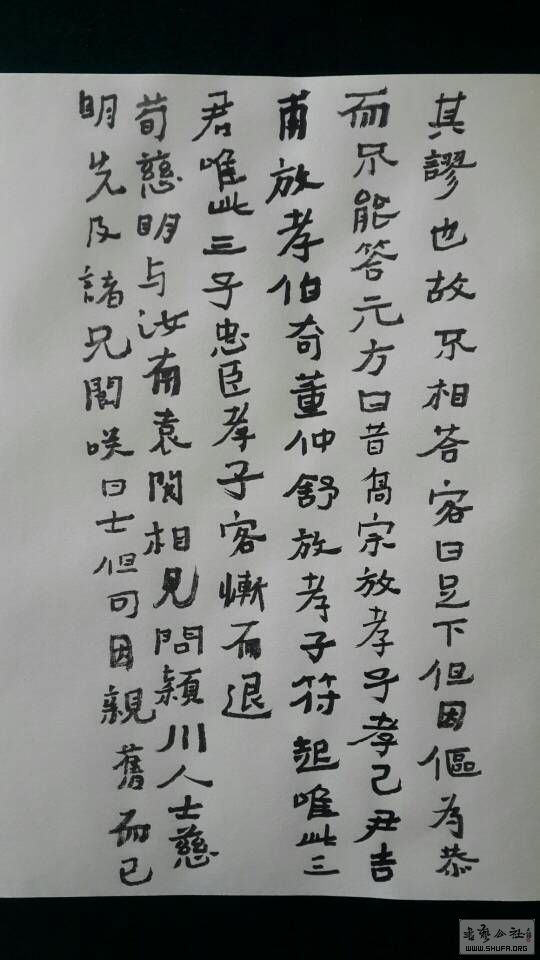 其謬也故不相答客曰足下但因傴為恭
而不能答元方曰昔高宗放孝子孝己尹吉
甫放孝伯奇董仲舒放孝子符起唯此三
君唯此三子忠臣孝子客慚而退
荀慈明与汝南袁閬相見問潁川人士慈
明先及諸兄閬咲曰士但可因親舊而已
WWW.SHUFA.ORG